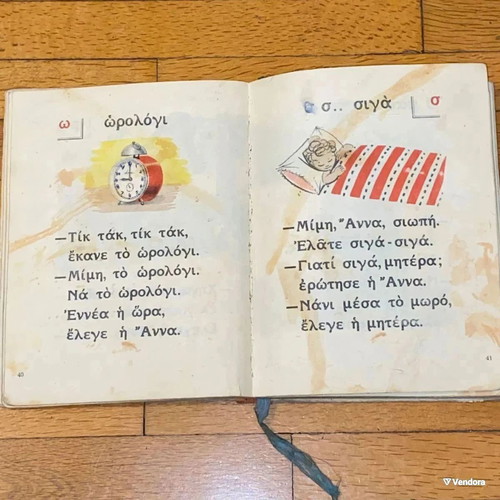 ω ὡρολόγι
—Τίκ τάκ, τίκ τάκ,
ἔκανε τὸ ὡρολόγι.
—Μίμη, τὸ ὡρολόγι.
Νά τὸ ὡρολόγι.
Ἐννέα ἡ ὥρα,
ἔλεγε ἡ Ἄννα.
40
σ.. σιγὰ σ
—Μίμη, Ἄννα, σιωπή.
Ἐλᾶτε σιγά-σιγά.
—Γιατί σιγά, μητέρα;
ἐρώτησε ἡ Ἄννα.
—Νάνι μέσα τὸ μωρό,
ἔλεγε ἡ μητέρα.
41
Vendora